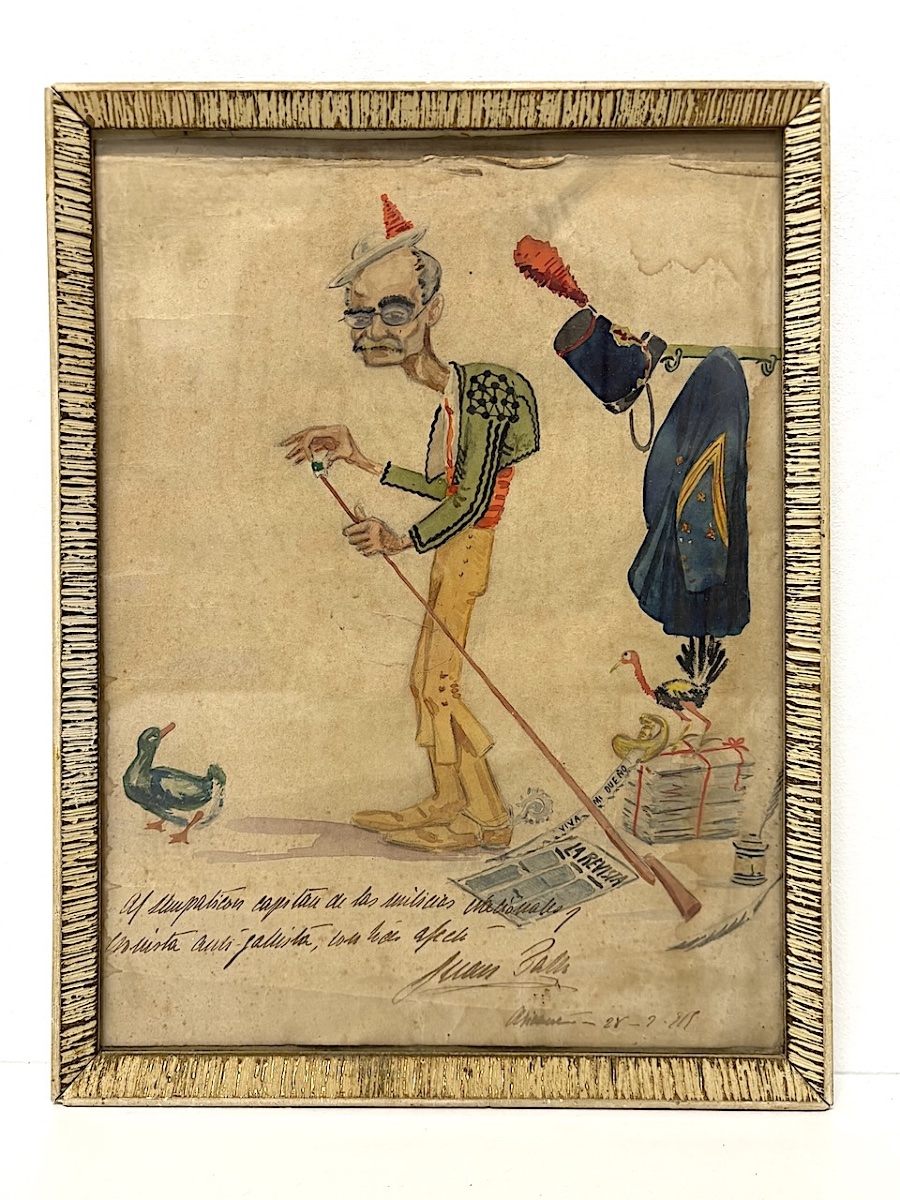 VIVA MI DUEÑO
LA REVISTA
Al simpaticón capitán de las milicias nacionales y
anti-galista, con todo afecto
Juan
28-9-